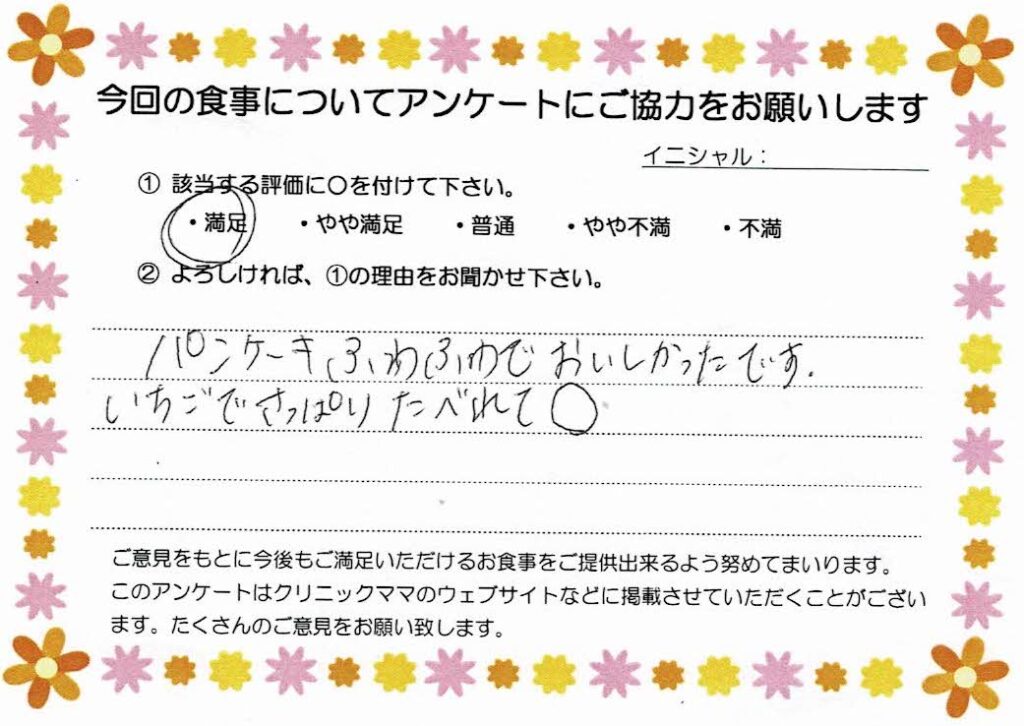 今回の食事についてアンケートにご協力をお願いします
イニシャル：
① 該当する評価に〇を付けて下さい。
・満足 ・やや満足 ・普通 ・やや不満 ・不満
② よろしければ、①の理由をお聞かせ下さい。
パンケーキふわふわでおいしかったです.
いちごでさっぱりたべれて〇
ご意見をもとに今後もご満足いただけるお食事をご提供出来るよう努めてまいります。
このアンケートはクリニックママのウェブサイトなどに掲載させていただくことがござい
ます。たくさんのご意見をお願い致します。